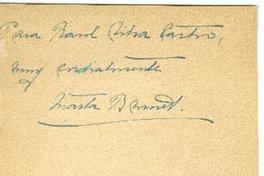 Para Raul Silva Castro,
muy cordialmente
Marta Brunet.